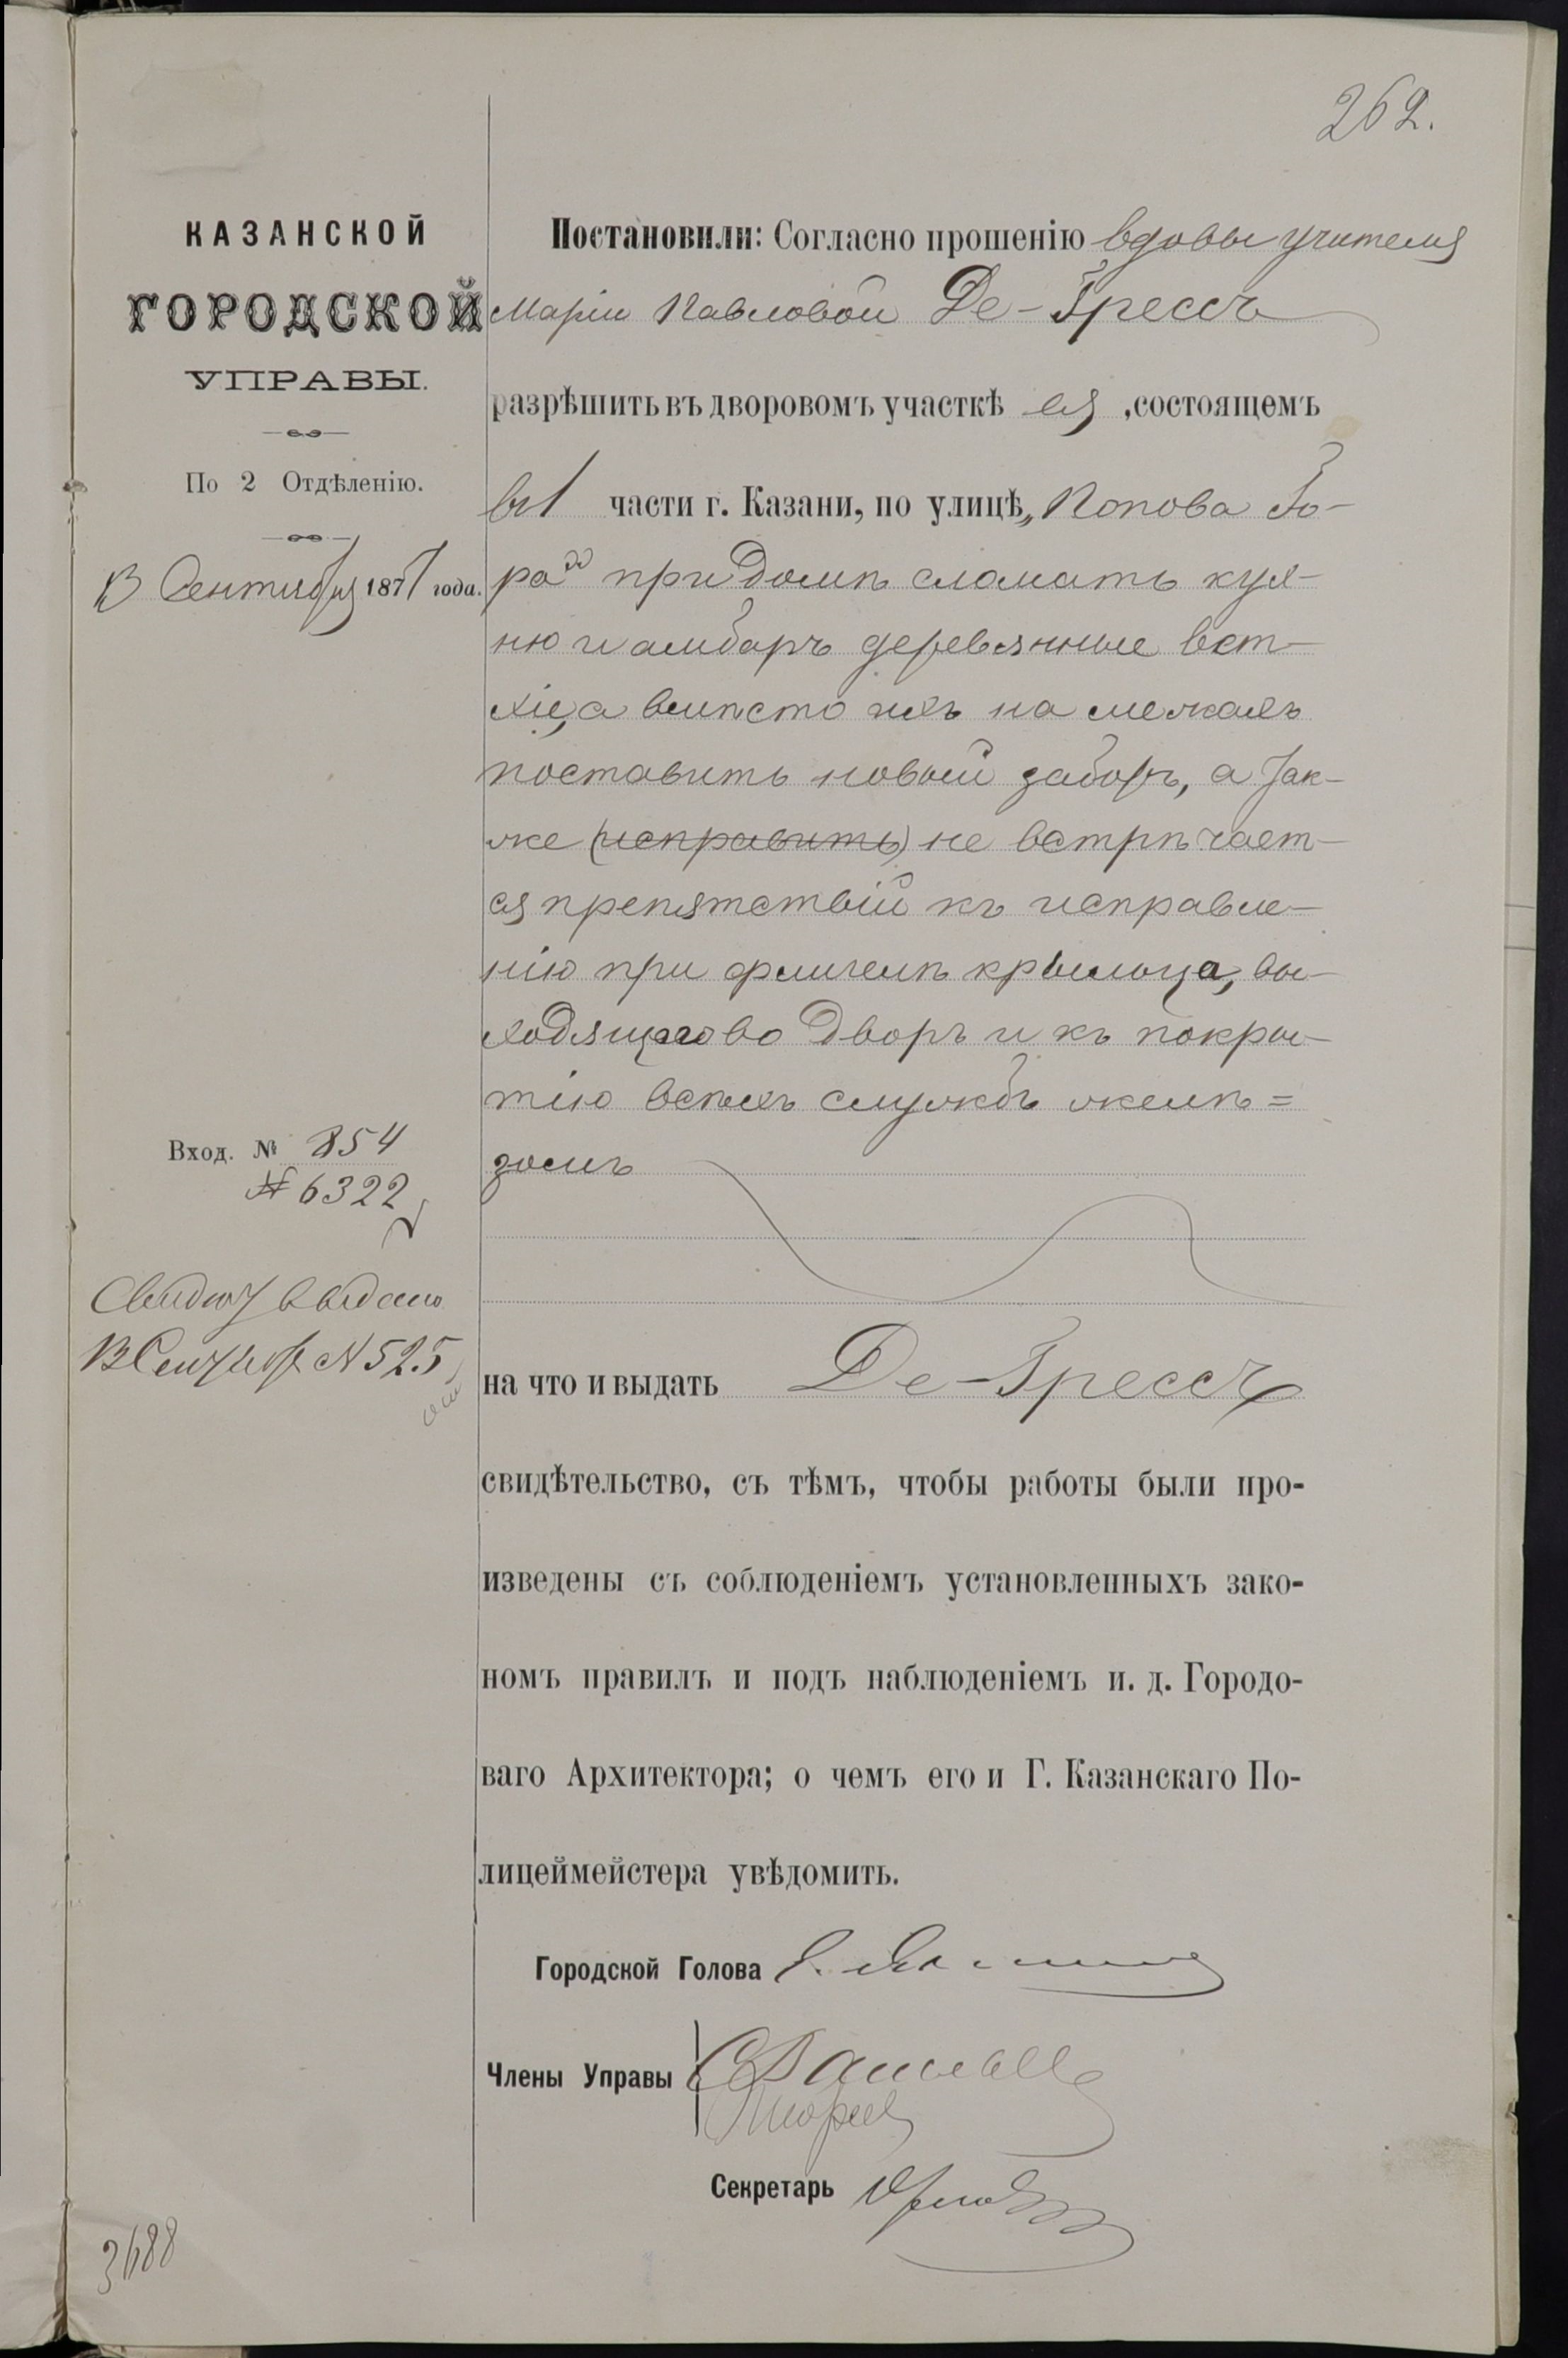 262.
КАЗАНСКОЙ
ГОРОДСКОЙ
УПРАВЫ.
По 2 Отдѣленію.
13 Сентября 1877 года.
Вход. № 854
№ 6322
выдано
13 Сентяб № 525
3688
Постановили: Согласно прошенію вдовы учителя
Маріи Павловой Де-Грессъ
разрѣшить въ дворовомъ участкѣ ея, состоящемъ
въ 1 части г. Казани, по улицѣ „Попова Го-
ра“ при домѣ сломать кух-
ню и амбаръ деревянные вет-
хіе, а вмѣсто ихъ на межахъ
поставить новый заборъ, а так-
же (исправить) не встрѣчает-
ся препятствій къ исправле-
нію при флигелѣ крыльца, вы-
ходящаго во дворъ и къ покры-
тію всѣхъ службъ желѣ=
зомъ
на что и выдать Де-Грессъ
свидѣтельство, съ тѣмъ, чтобы работы были про-
изведены съ соблюденіемъ установленныхъ зако-
номъ правилъ и подъ наблюденіемъ и. д. Городо-
ваго Архитектора; о чемъ его и Г. Казанскаго По-
лицеймейстера увѣдомить.
Городской Голова
Члены Управы
Секретарь